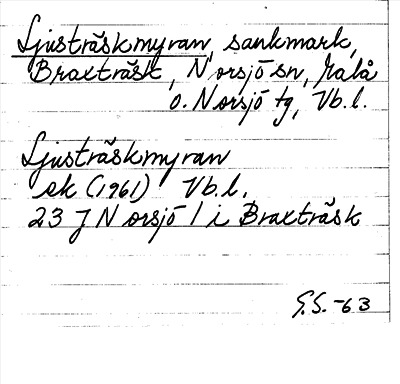 Ljusträskmyran, sankmark,
Braxträsk, Norsjö sn, Malå
o. Norsjö tg, Vb.l.
Ljusträskmyran
ek (1961) Vb.l.
23 J Norsjö 1 i Braxträsk
G.S. -63